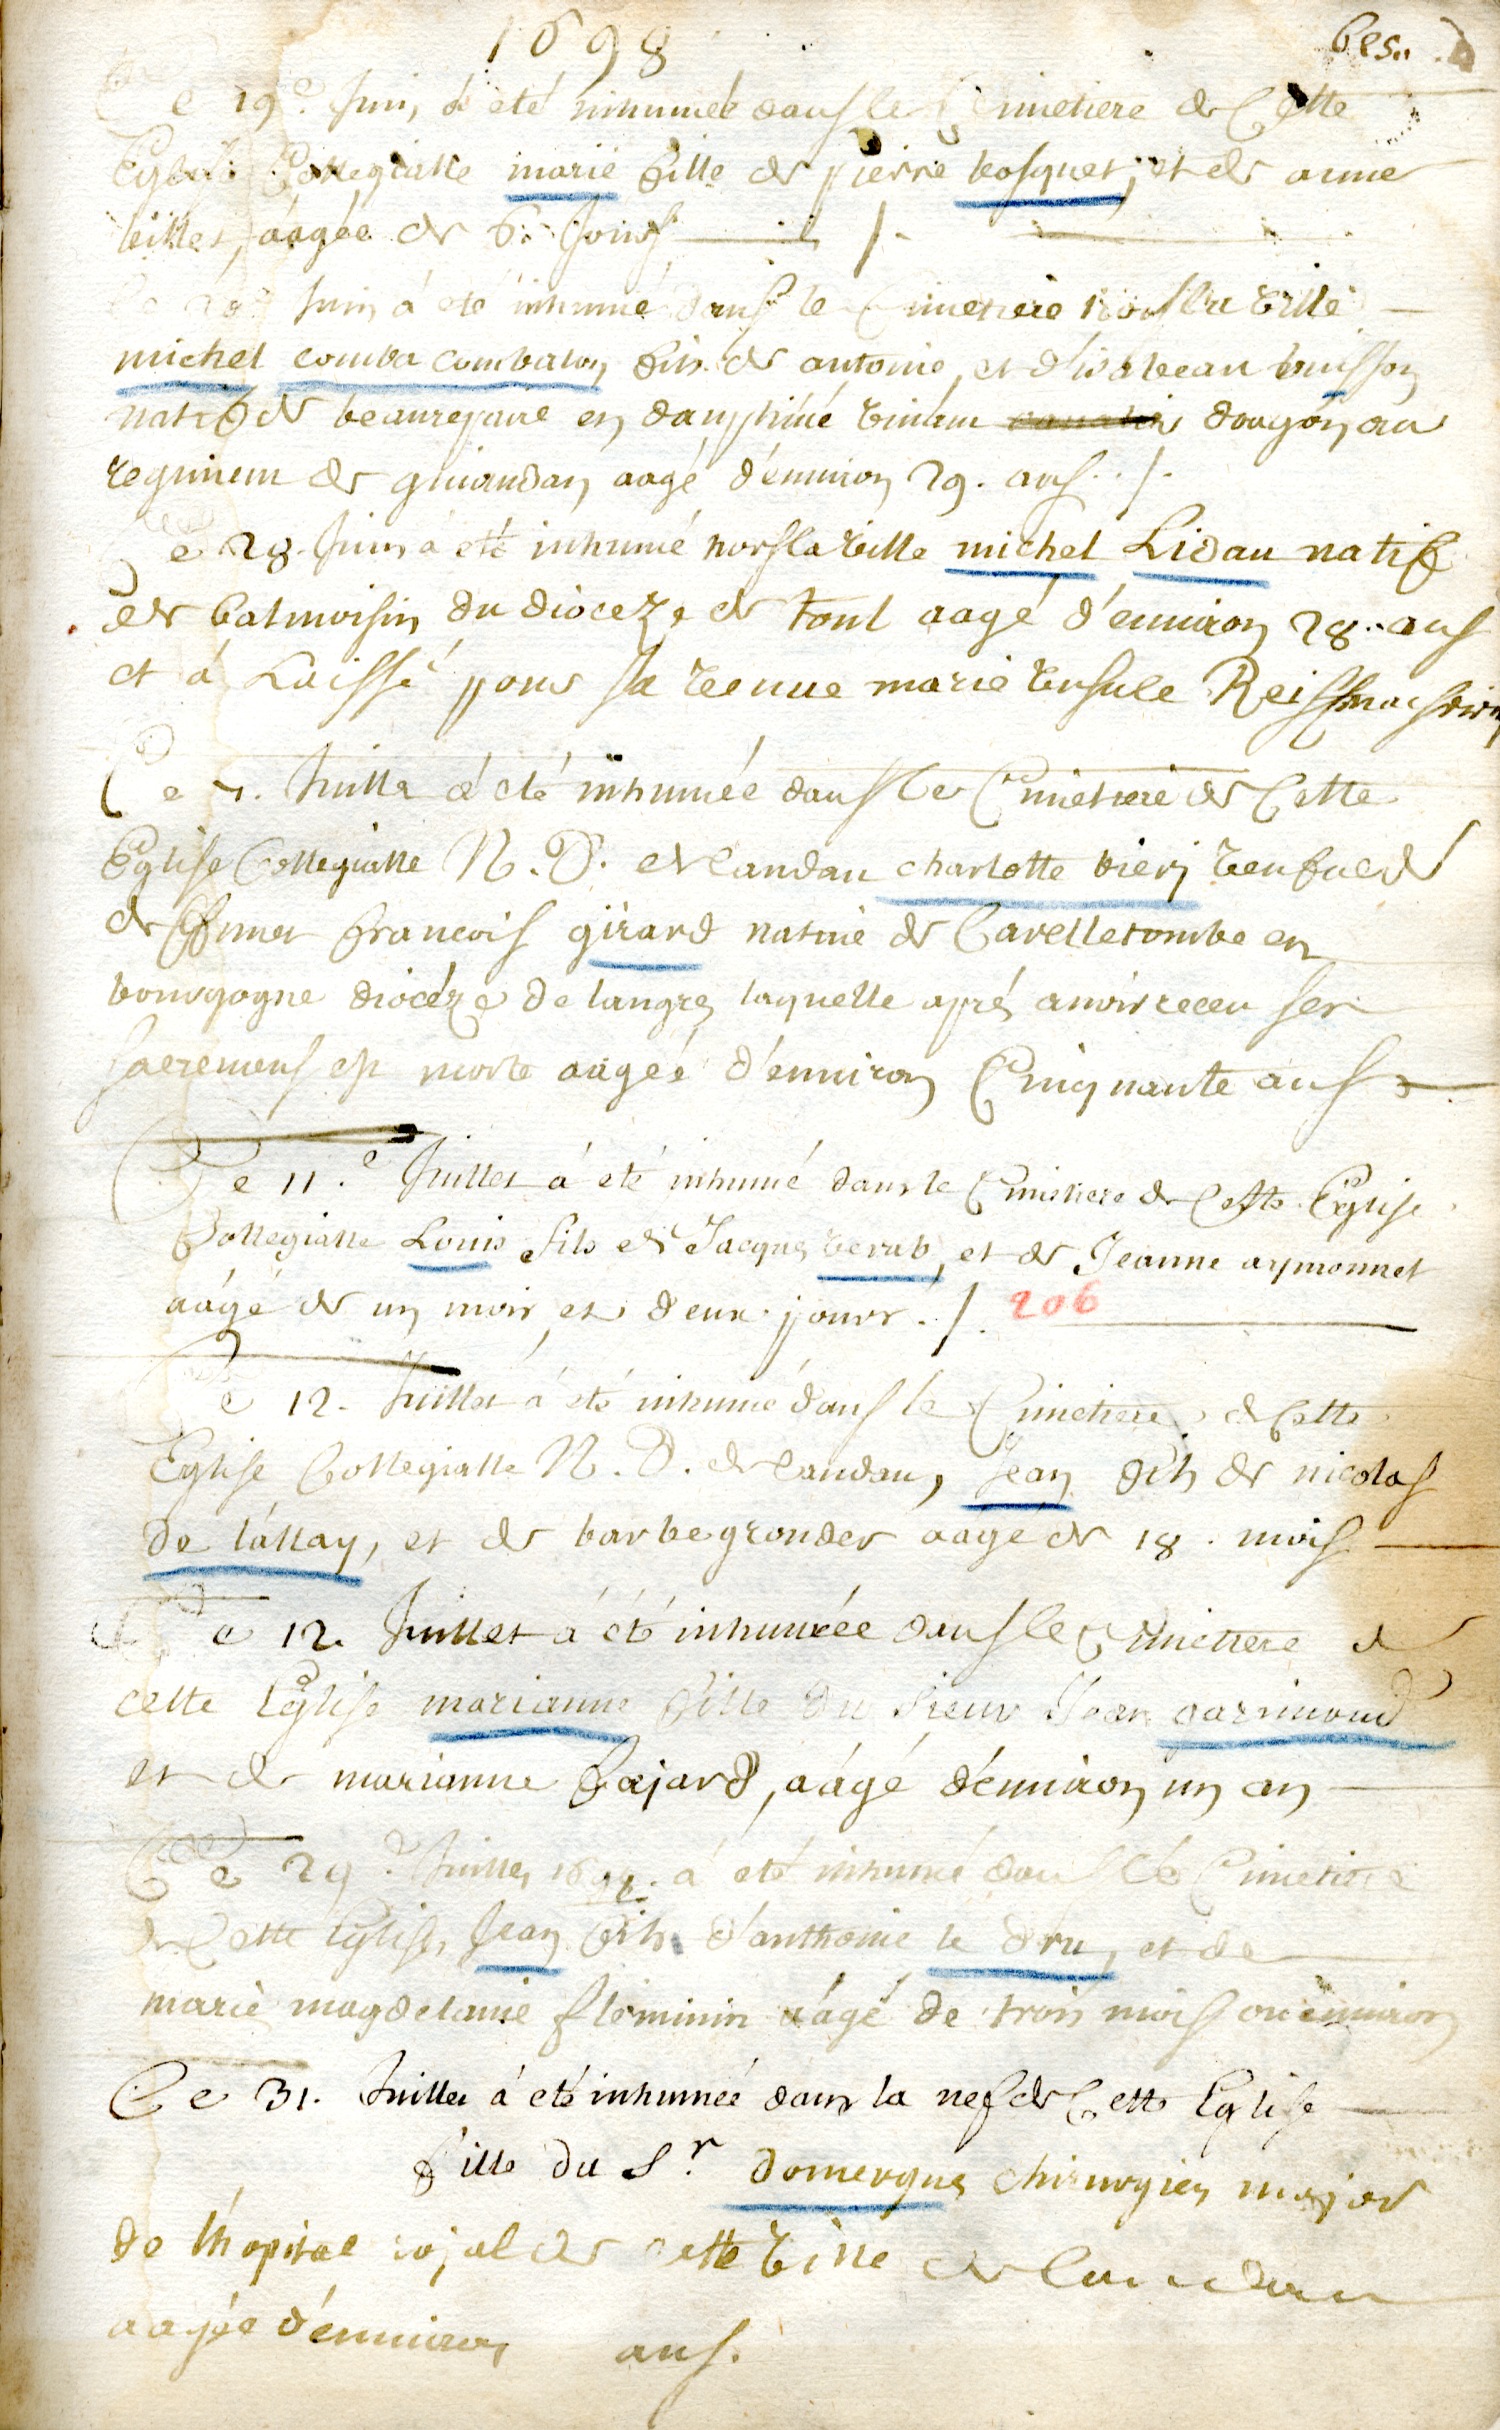 1698
Ce 19e. Juin, á eté inhumée dans le Cimetiere de Cette
Eglise Collegialle marie fille de pierre bosquet, et de anne
aagée de 6. Jours ./.
Juin á eté inhumé dans le Cimetiere hors la ville
michel comba combalon, fils de antoine, et d'isabeau buisson
natif de beaurepaire en dauphiné dragon au
regiment de aagé d'enuiron 29. ans ./.
Ce 28. Juin á eté inhumé hors la ville michel Lidau natif
de du dioceze de toul aagé d'enuiron 28. ans
et á Laissé pour sa veuue marie vrsule
Ce 7. Juillet á eté inhumée dans le Cimetiere de Cette
Eglise Collegialle N. D. de landau charlotte vefue de
de francois girard natiue de en
bourgogne diocéze de langres, laquelle aprés auoir receu ses
sacremens est morte aagée d'enuiron Cinquante ans
Ce 11.e Juillet á eté inhumé dans le Cimetiere de Cette Eglise
Collegialle Louis fils de Jacques et de Jeanne aymonnet
aágé de un mois, et deux jours ./. 206
Ce 12. Juillet á eté inhumé dans le Cimetiere de Cette
Eglise Collegialle N. D. de landau, Jean fils de nicolas
de lállay, et de barbe gronder aagé de 18. mois
Ce 12. Juillet á eté inhumée dans le Cimetiere de
cette Eglise marianne fille du sieur Jean darimond
et de marianne fajard, aágé d'enuiron un an
Ce 29e Juillet 1698. á eté inhumé dans le Cimetiere
de Cette Eglise, Jean fils d'anthoine le dru, et de
marie magdelaine fleminin aágé de trois mois ou enuiron
Ce 31. Juillet á eté inhumeé dans la nef de Cette Eglise
fille du Sr. domergue chirurgien major
de l'hopital rojal de cette ville de landau
aagée d'enuiron ans.